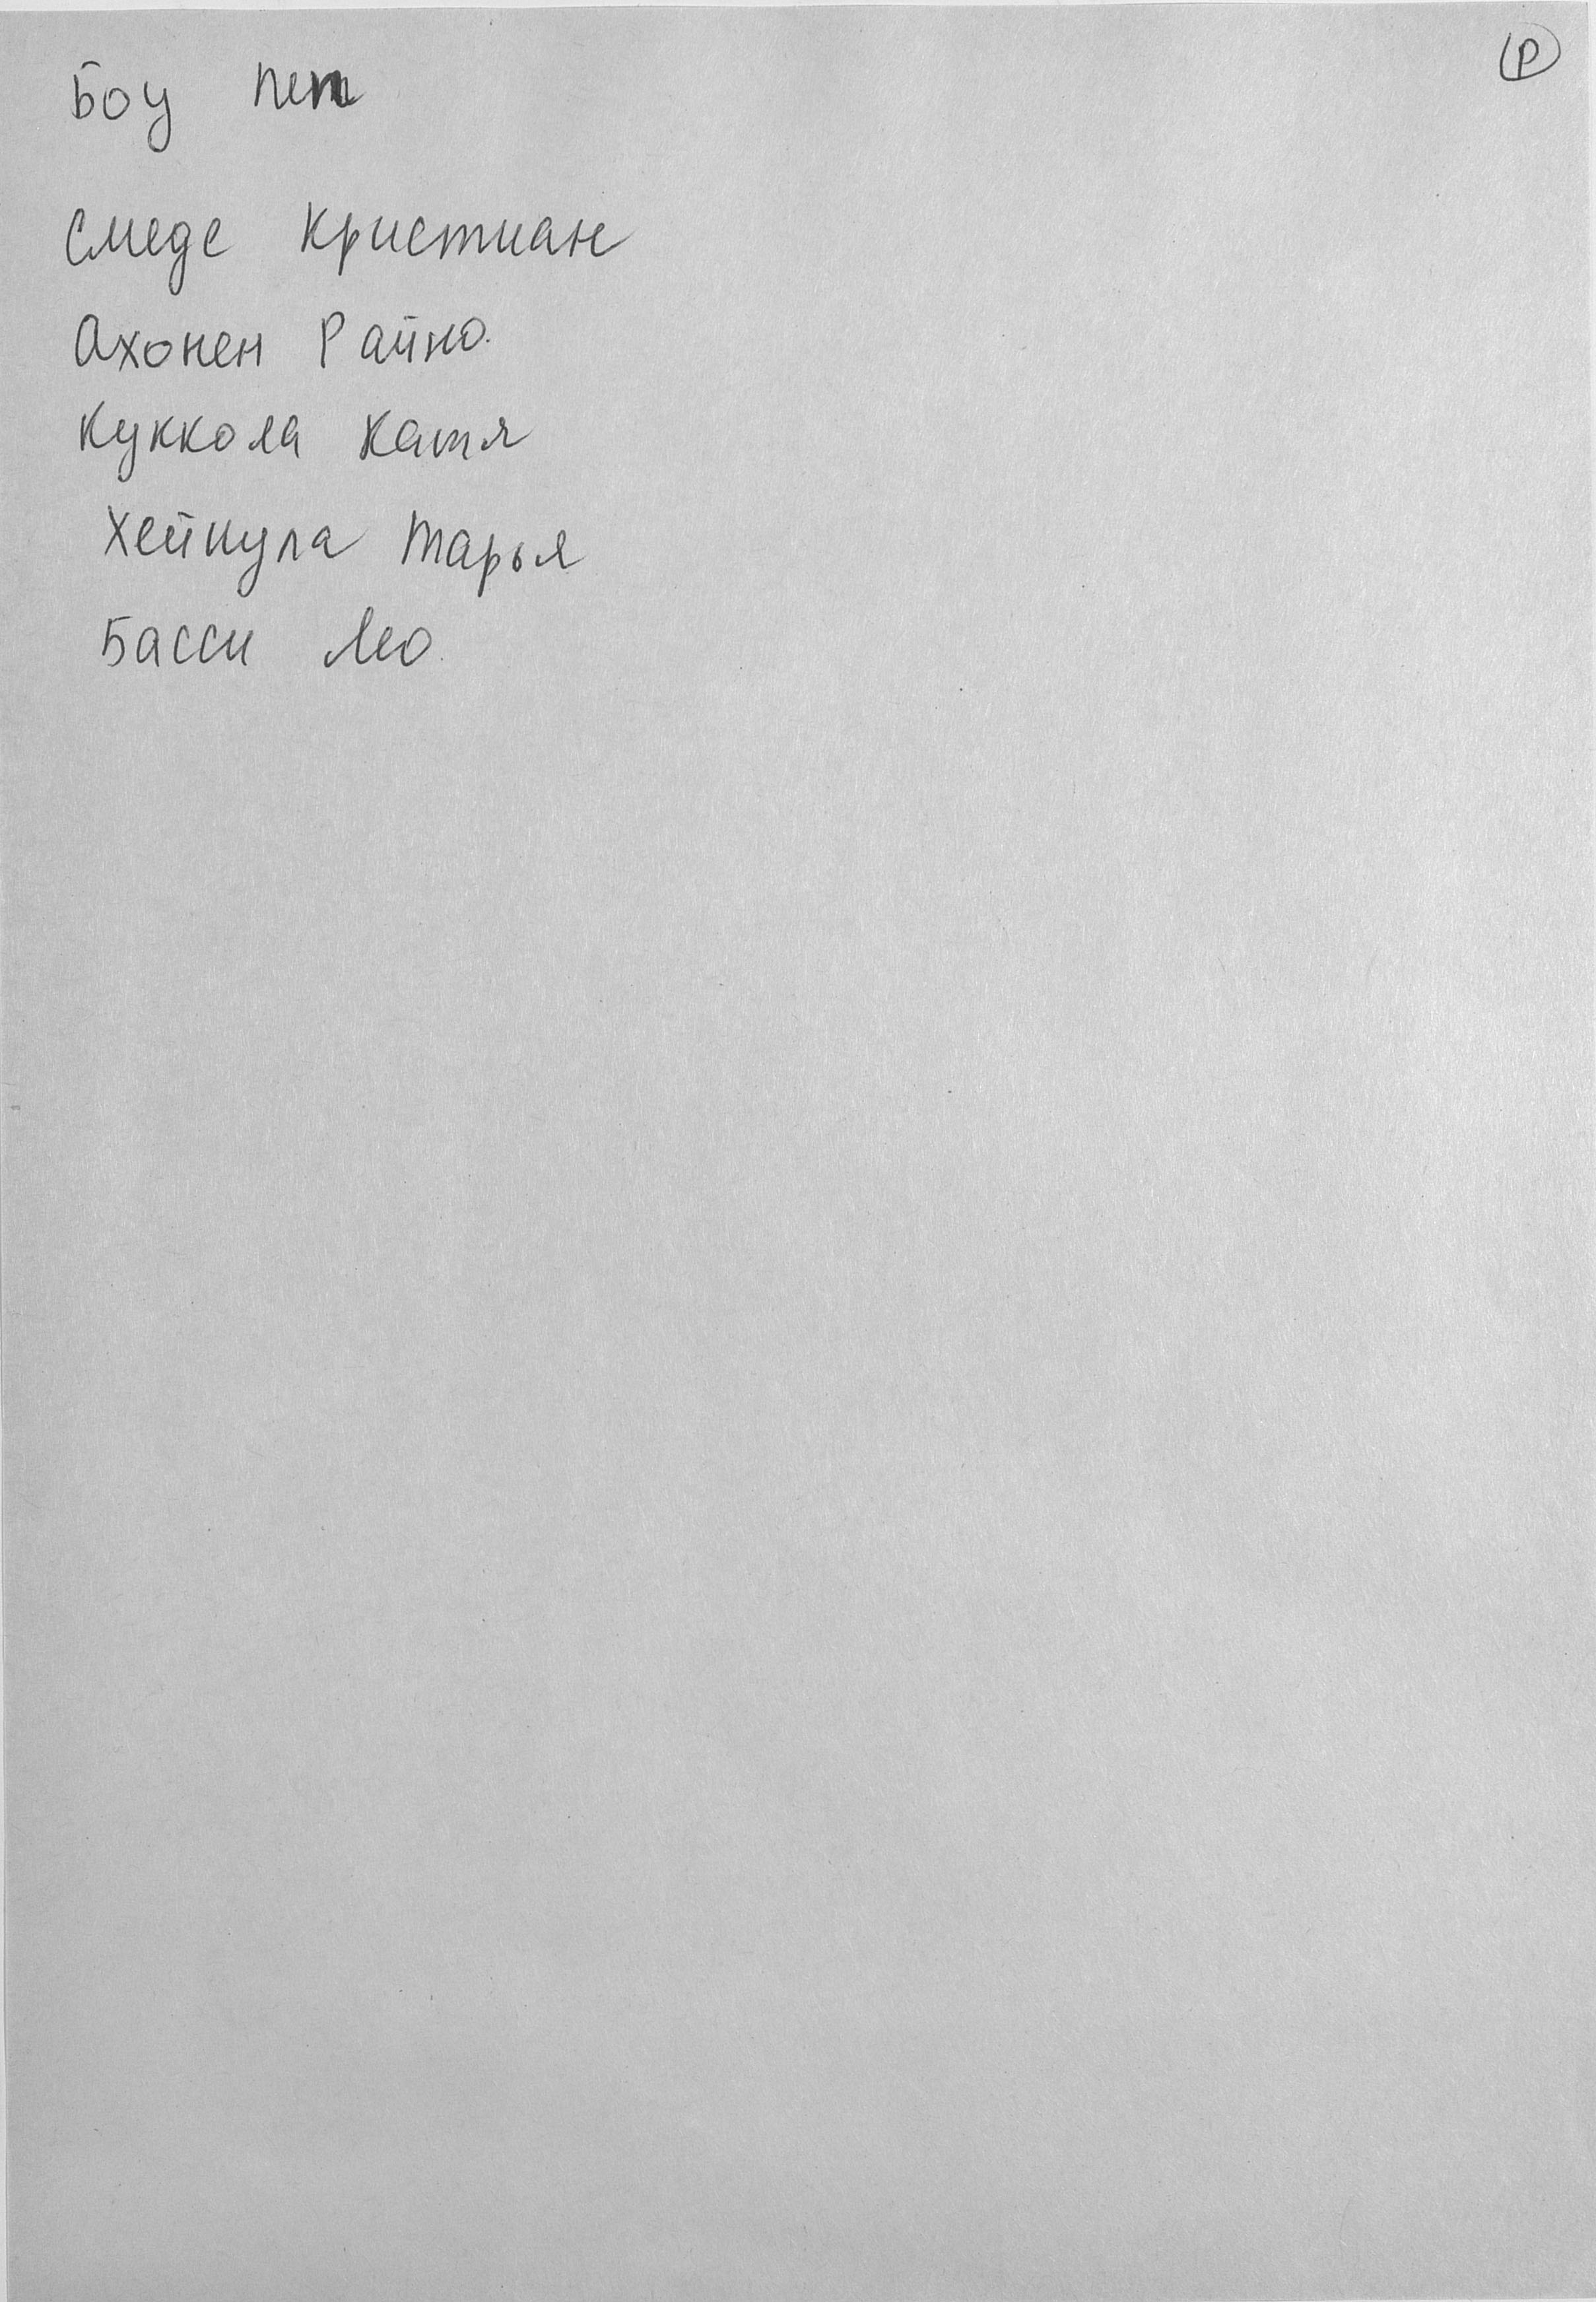 Р
Боу Пет
Смедс Кристиан
Ахонен Райно
Куккола Катя
Хейнула Тарья
Басси Лео